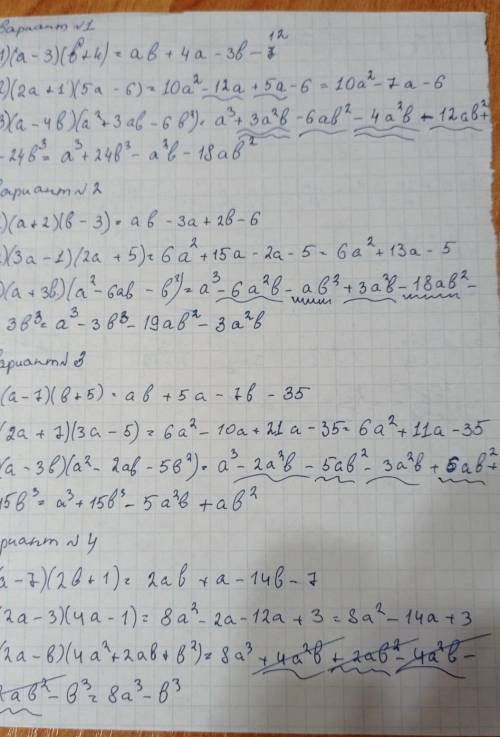 вариант №1
1)(a-3)(b+4)= ab + 4a - 3b - 12
2)(2a+1)(5a-6)= 10a²- 12a + 5a - 6 = 10a²- 7a - 6
3)(a-4b)(a²+3ab-6b²)= a³+3a²b-6ab²-4a²b-12ab²+
-24b³= a³+24b³- a²b-18ab²
вариант №2
)(a+2)(b-3)= ab -3a+2b-6
)(3a-1)(2a+5)= 6a²+15a-2a-5= 6a²+13a-5
)(a+3b)(a²-6ab-b²)= a³-6a²b-ab²+3a²b-18ab²-
3b³= a³-3b³-19ab²-3a²b
вариант №3
(a-7)(b+5)= ab +5a-7b-35
(2a+7)(3a-5)= 6a²-10a+21a-35= 6a²+11a-35
(a-3b)(a²-2ab-5b²)= a³-2a²b-5ab²-3a²b+6ab²+
15b³= a³+15b³-5a²b+ab²
ариант №4
a-7)(2b+1)= 2ab + a-14b-7
(2a-3)(4a-1)= 8a²-2a-12a+3=8a²-14a+3
(2a-b)(4a²+2ab+b²)= 8a³+4a²b+2ab²-4a²b-
2ab²-b³= 8a³-b³